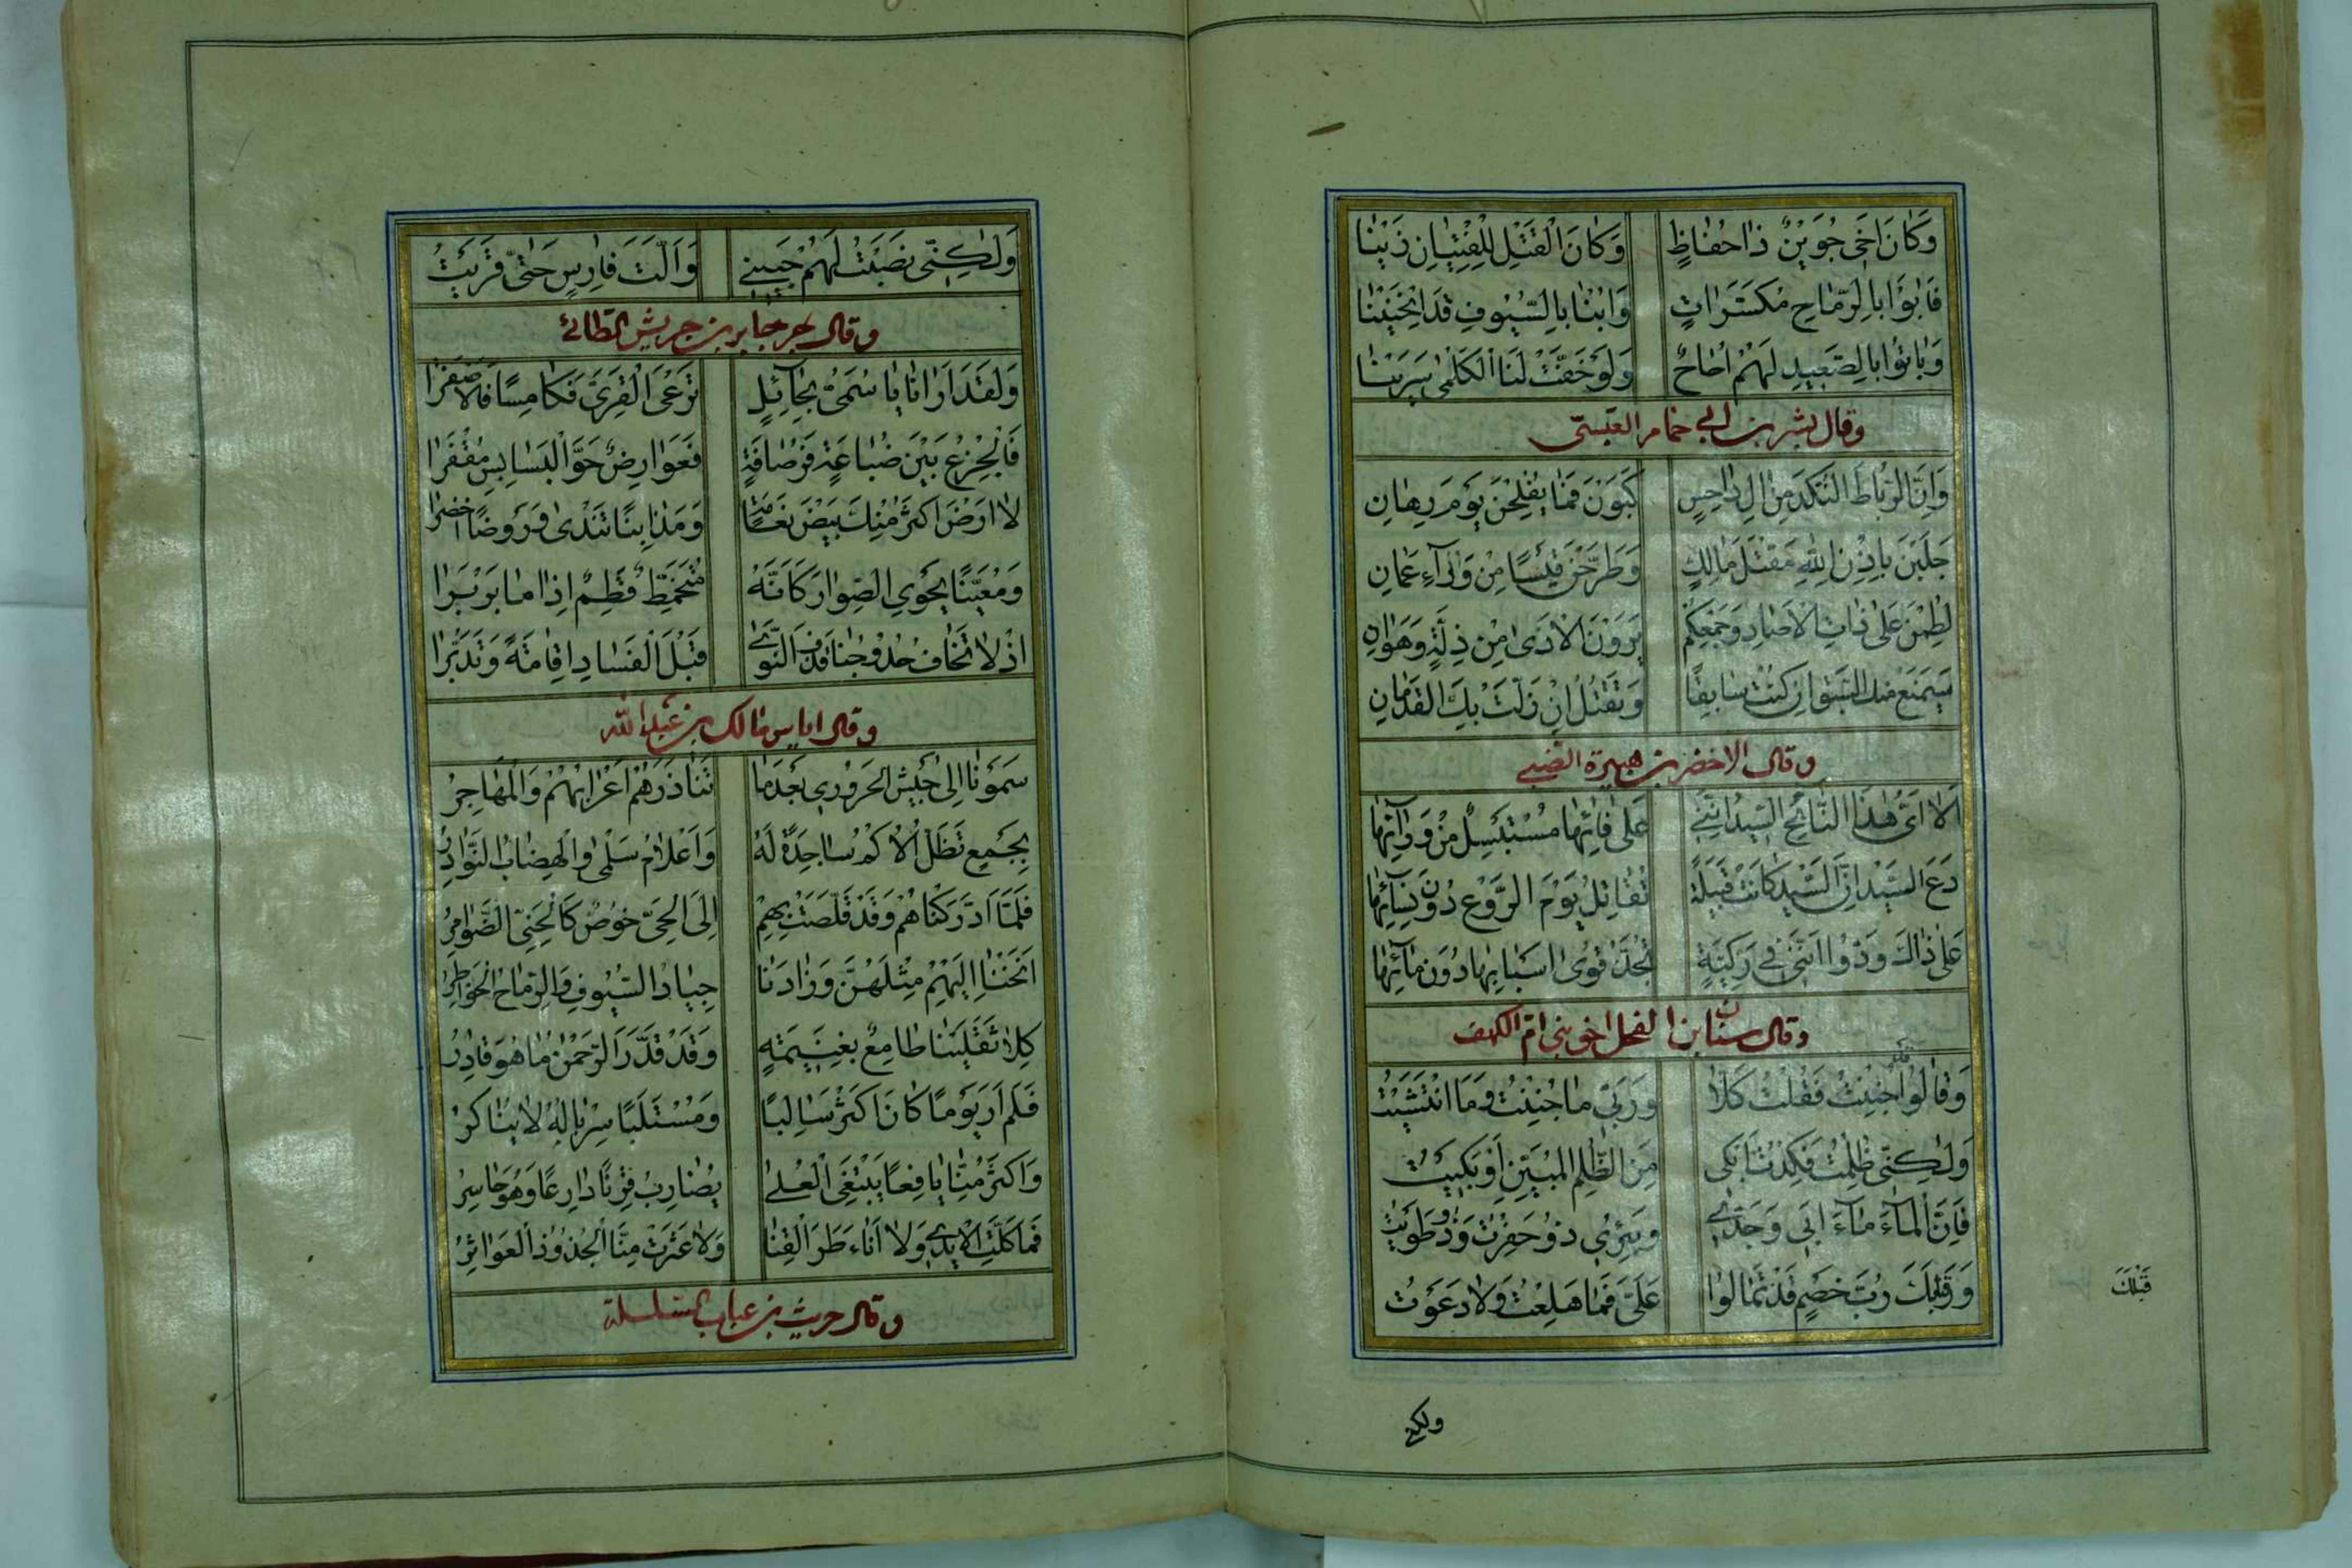 وَكَانَ اَخِي جُوَيْنٌ ذَا حُفَاظٍ وَكَانَ الْقَتْلُ لِلْفِتْيَانِ زَيْنَا
فَابُوا بِالرِّمَاحِ مُكَسَّرَاتٍ وَابْنَا بِالسُّيُوفِ قَدِ انْحَنَيْنَا
وَبَاتُوا بِالصَّعِيدِ لَهُمْ اُحَاحٌ وَلَوْ خَفَّتْ لَنَا الْكَلْمٰى سَرَيْنَا
وقال بشر بن ابي حمام العبسي
وَاِنَّ الرِّبَاطَ النُّكْدَ مِنْ اٰلِ دَاحِسٍ كَبَوْنَ فَمَا يُفْلِحْنَ يَوْمَ رِهَانِ
جَلَبْنَ بِاِذْنِ اللّٰهِ مَقْتَلَ مَالِكٍ وَطَرَّحْنَ قَيْسًا مِنْ وَرَآءِ عُمَانِ
لُطِمْنَ عَلٰى ذَاتِ الْاَصَادِ وَجَمْعُكُمْ يَرَوْنَ الْاَذٰى مِنْ ذِلَّةٍ وَهَوَانِ
سَيَمْنَعُ مِنْكَ السَّبْقَ اِنْ كُنْتَ سَابِقًا وَتُقْتَلُ اِنْ زَلَّتْ بِكَ الْقَدَمَانِ
وقال الاخضر بن هبيرة الضبي
اَلَا اَيُّهٰذَا النَّابِحُ السِّيدَ اِنَّنِي عَلٰى نَائِهَا مُسْتَبْسِلٌ مِنْ وَرَآئِهَا
دَعِ السِّيدَ اِنَّ السِّيدَ كَانَتْ قَبِيلَةً تُقَاتِلُ يَوْمَ الرَّوْعِ دُونَ نِسَآئِهَا
عَلٰى ذَاكَ وَدُّوا اَنَّنِي فِي رَكِيَّةٍ تُجَذُّ قُوٰى اَسْبَابِهَا دُونَ مَآئِهَا
وقال سنان ابن الفحل اخو بني ام الكهف
وَقَالُوا قَدْ جُنِنْتَ فَقُلْتُ كَلَّا وَرَبِّي مَا جُنِنْتُ وَمَا انْتَشَيْتُ
وَلٰكِنِّي ظُلِمْتُ فَكِدْتُ اَبْكِي مِنَ الظُّلْمِ الْمُبَيَّنِ اَوْ بَكَيْتُ
فَاِنَّ الْمَآءَ مَآءُ اَبِي وَجَدِّي وَبِئْرِي ذُو حَفَرْتُ وَذُو طَوَيْتُ
وَقَبْلَكَ رُبَّ خَصْمٍ قَدْ تَمَالَوْا عَلَيَّ فَمَا هَلِعْتُ وَلَا دَعَوْتُ
قَبْلَكَ
ولكني
وَلٰكِنِّي نَصَبْتُ لَهُمْ جَبِينِي وَاَلَّتَ فَارِسٍ حَتّٰى قَرَيْتُ
وقال جابر بن حريش الطائي
وَلَقَدْ اَرَانَا يَا سُمَيُّ بِحَآئِلٍ نَرْعَى الْقَرِيَّ فَكَامِسًا فَالْاَصْفَرَا
فَالْجِزْعَ بَيْنَ ضُبَاعَةٍ فَرُصَافَةٍ فَعَوَارِضٌ حَوَّ الْبَسَابِسِ مُقْفَرَا
لَا اَرْضَ اَكْثَرُ مِنْكِ بَيْضَ نَعَامَةٍ وَمَذَانِبًا تَنْدٰى وَرَوْضًا اَخْضَرَا
وَمُعَيَّنًا يَحْوِي الصِّوَارَ كَاَنَّهُ مُتَخَمِّطٌ قَطِمٌ اِذَا مَا بَرْبَرَا
اِذْ لَا تَخَافُ حُدُوجُنَا قَذَفَ النَّوٰى قَبْلَ الْفَسَادِ اِقَامَةً وَتَدَيُّرَا
وقال اياس مالك بن عبدالله
سَمَوْنَا اِلٰى جَيْشِ الْحَرُورِي بَعْدَ مَا تَنَاذَرَهُمْ اَعْرَابُهُمْ وَالْمُهَاجِرُ
بِجَمْعٍ تَظَلُّ الْاُكْمُ سَاجِدَةً لَهُ وَاَعْلَامُ سَلْمٰى وَالْهِضَابُ النَّوَادِرُ
فَلَمَّا اَدْرَكْنَاهُمْ وَقَدْ قَلَّصَتْ بِهِمْ اِلَى الْحَيِّ خُوصٌ كَالْحَنِيِّ الضَّوَامِرُ
اَنَخْنَا اِلَيْهِمْ مِثْلَهُنَّ وَزَادَنَا جِيَادُ السُّيُوفِ وَالرِّمَاحُ الْخَوَاطِرُ
كِلَا ثَقَلَيْنَا طَامِعٌ بِغَنِيمَةٍ وَقَدْ قَدَّرَ الرَّحْمٰنُ مَا هُوَ قَادِرُ
فَلَمْ اَرَ يَوْمًا كَانَ اَكْثَرَ سَالِبًا وَمُسْتَلَبًا سِرْبَالُهُ لَا يُنَاكِرُ
وَاَكْثَرَ مِنَّا يَافِعًا يَبْتَغِي الْعُلٰى يُضَارِبُ قِرْنًا دَارِعًا وَهُوَ حَاسِرُ
فَمَا كَلَّتِ الْاَيْدِي وَلَا اَنْاَطَرَ الْقَنَا وَلَا عَثَرَتْ مِنَّا الْجُدُودُ الْعَوَاثِرُ
وقال حريث بن عناب السلسلة